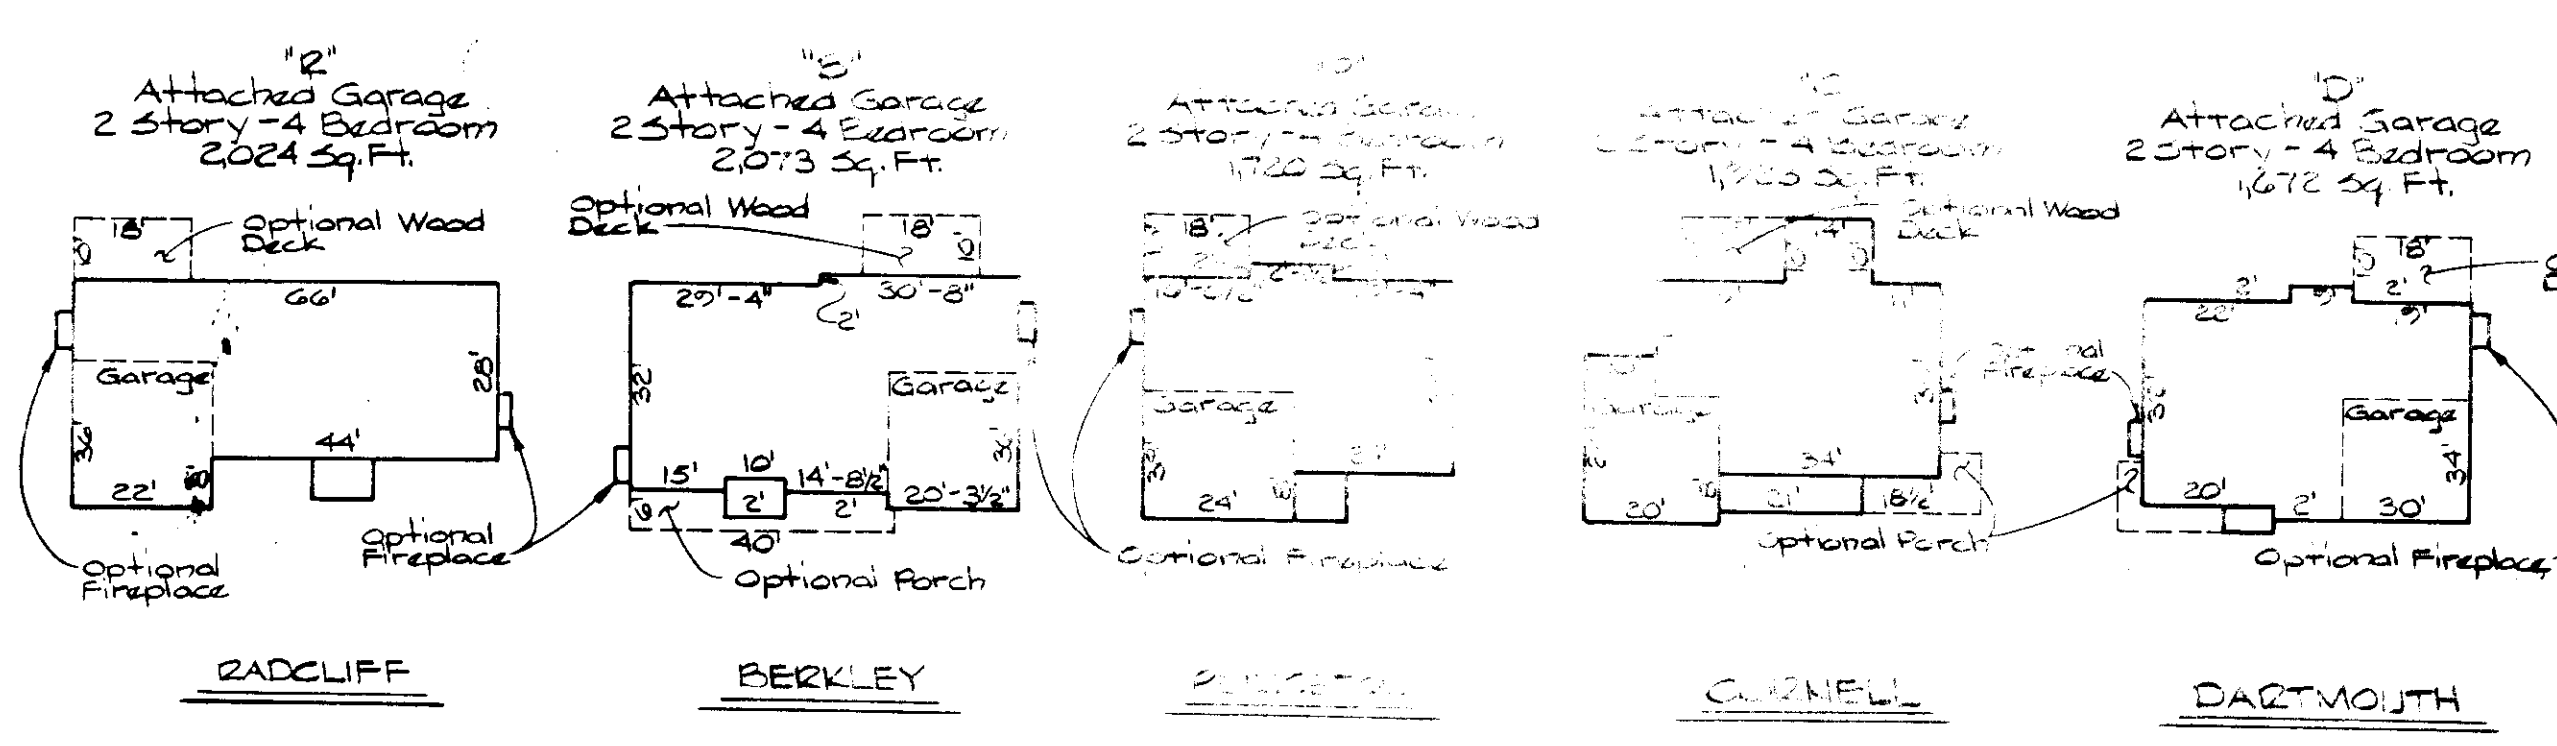 "R"
Attached Garage
2 Story - 4 Bedroom
2,024 Sq. Ft.
18'
Optional Wood
Deck
66'
Garage
28'
36'
44'
22'
8'
Optional
Fireplace
Optional
Fireplace
RADCLIFF
"B"
Attached Garage
2 Story - 4 Bedroom
2,073 Sq. Ft.
Optional Wood
Deck
18'
10'
29'-4"
30'-8"
2'
32'
Garage
36'
15'
10'
14'-8½"
2'
2'
20'-3½"
6'
40'
Optional Porch
BERKLEY
Attached Garage
2 Story - 4 Bedroom
1,720 Sq. Ft.
18'
Optional Wood
Garage
24'
Optional Fireplace
PRINCETON
"C"
Attached Garage
2 Story - 4 Bedroom
Sq. Ft.
Optional Wood
Deck
14'
Garage
34'
20'
21'
18½'
Optional
Fireplace
Optional Porch
CORNELL
"D"
Attached Garage
2 Story - 4 Bedroom
1,672 Sq. Ft.
18'
2'
22'
2'
Garage
34'
20'
2'
30'
Optional Fireplace
DARTMOUTH